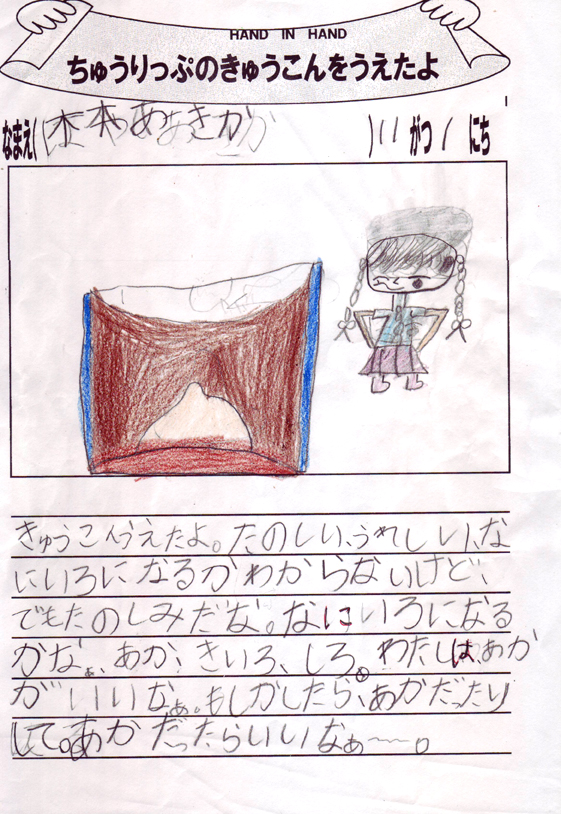 HAND IN HAND
ちゅうりっぷのきゅうこんをうえたよ
なまえ( )11がつ1にち
きゅうこんうえたよ。たのしい、うれしい、な
にいろになるかわからないけど、
でもたのしみだな。なにいろになる
かなぁ、あか、きいろ、しろ。わたしは、あか
がいいなぁ。もしかしたら、あかだったり
して。あかだったらいいなぁ〜。